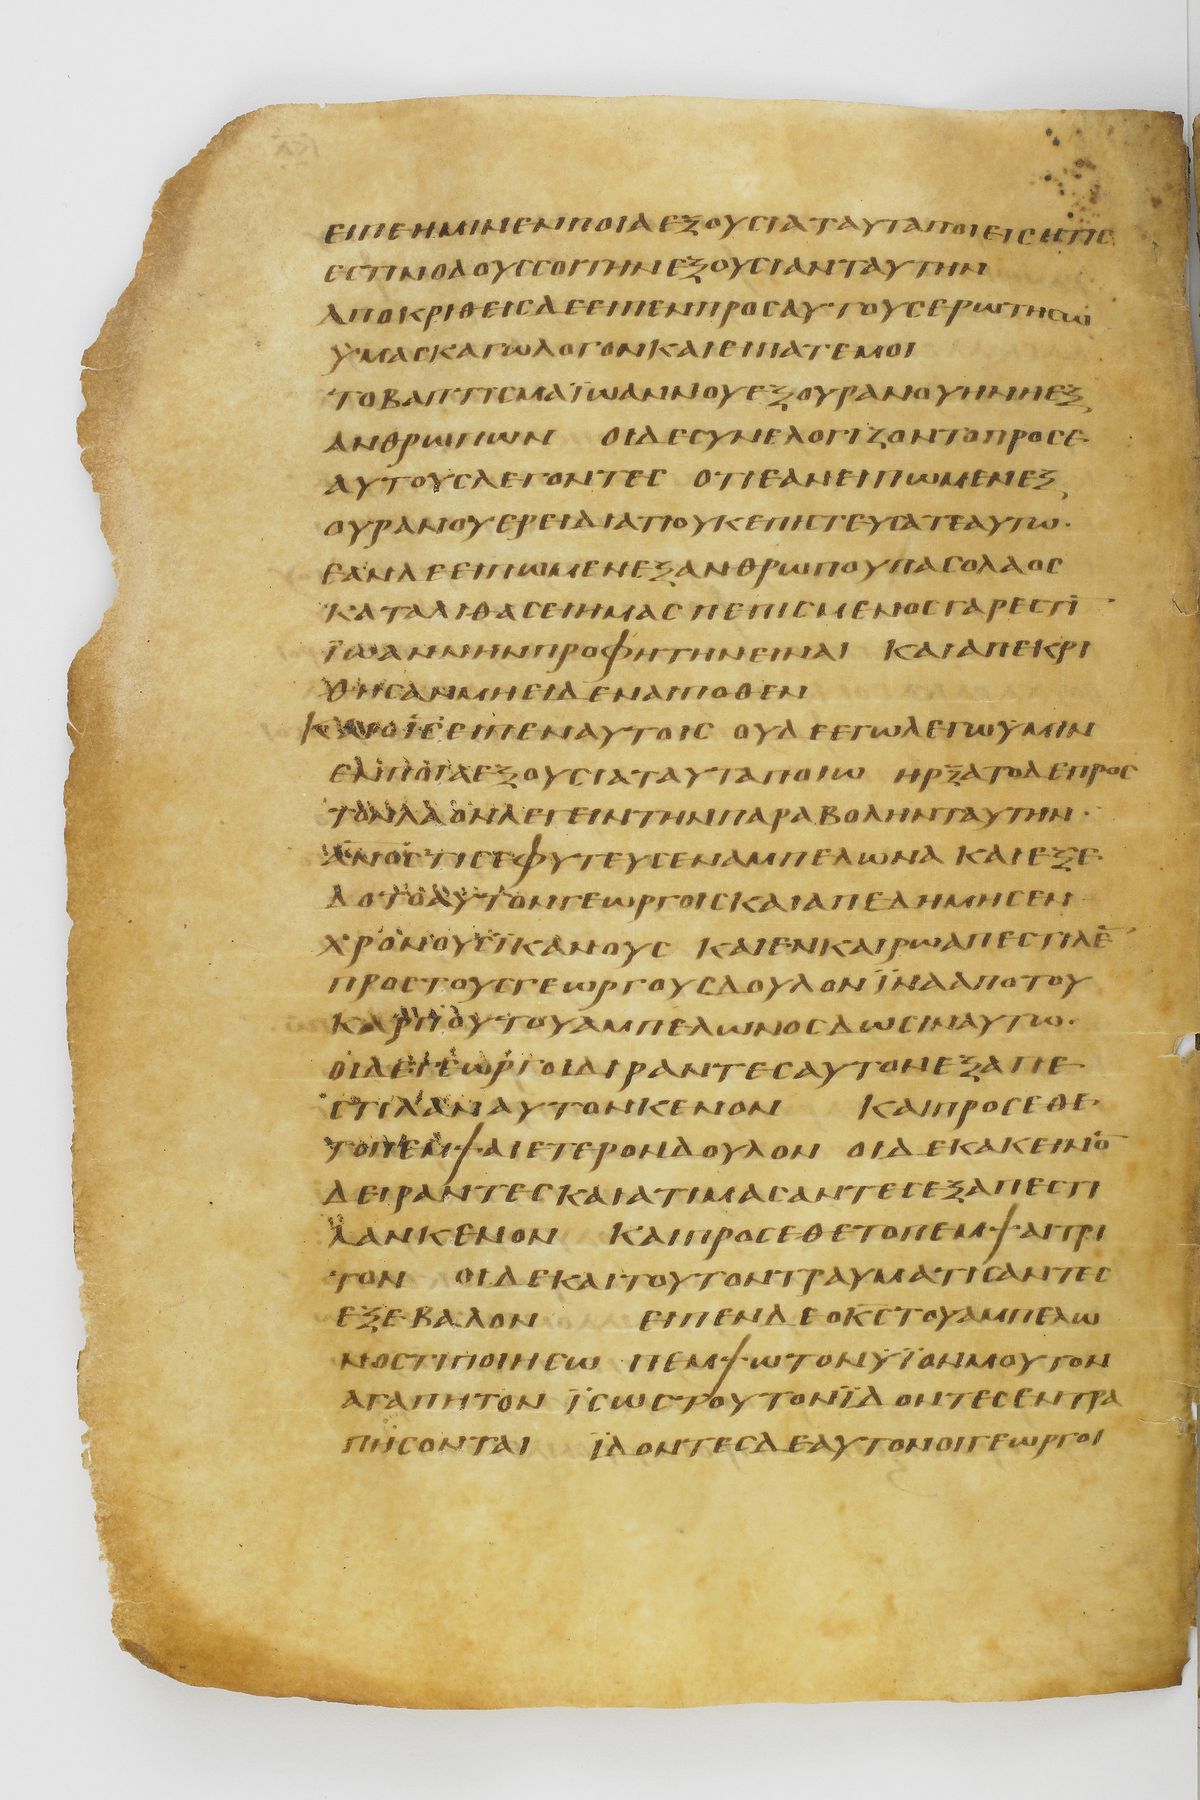 ειπεημινενποιαεξουσιαταυταποιεισητισ
εστινοδουσσοιτηνεξουσιανταυτην
αποκριθεισδεειπενπροσαυτουσερωτησω
ϋμασκαγωλογονκαιειπατεμοι
τοβαπτισμαϊωαννουεξουρανουηνηεξ
ανθρωπων οιδεσυνελογιζοντοπροσε
αυτουσλεγοντεσ οτιεανειπωμενεξ
ουρανουερειδιατιουκεπιστευσατεαυτω·
εανδεειπωμενεξανθρωπουπασολαοσ
καταλιθασειημασ πεπισμενοσγαρεστῑ
ϊωαννηνπροφητηνειναι καιαπεκρι
θησανμηειδεναιποθεν
καιοῑσ̄ειπεναυτοισ ουδεεγωλεγωϋμιν
ενποιαεξουσιαταυταποιω ηρξατοδεπροσ
τονλαονλεγειντηνπαραβοληνταυτην·
ᾱν̄οσ̄τισεφυτευσεναμπελωνα καιεξε
δοτοαυτονγεωργοισκαιαπεδημησεν
χρονουσϊκανουσ καιενκαιρωαπεστιλε̄
προστουσγεωργουσδουλονϊνααποτου
καρπουτουαμπελωνοσδωσιναυτω·
οιδεγεωργοιδιραντεσαυτονεξαπε
στιλαναυτονκενον καιπροσεθε
τοπεμψαιετερονδουλον οιδεκακεινο̄
δειραντεσκαιατιμασαντεσεξαπεστι
λανκενον καιπροσεθετοπεμψαιτρι
τον οιδεκαιτουτοντραυματισαντεσ
εξεβαλον ειπενδεοκ̄σ̄τουαμπελω
νοστιποιησω πεμψωτονϋϊονμουτον
αγαπητον ϊσωστουτονϊδοντεσεντρα
πησονται ϊδοντεσδεαυτονοιγεωργοι